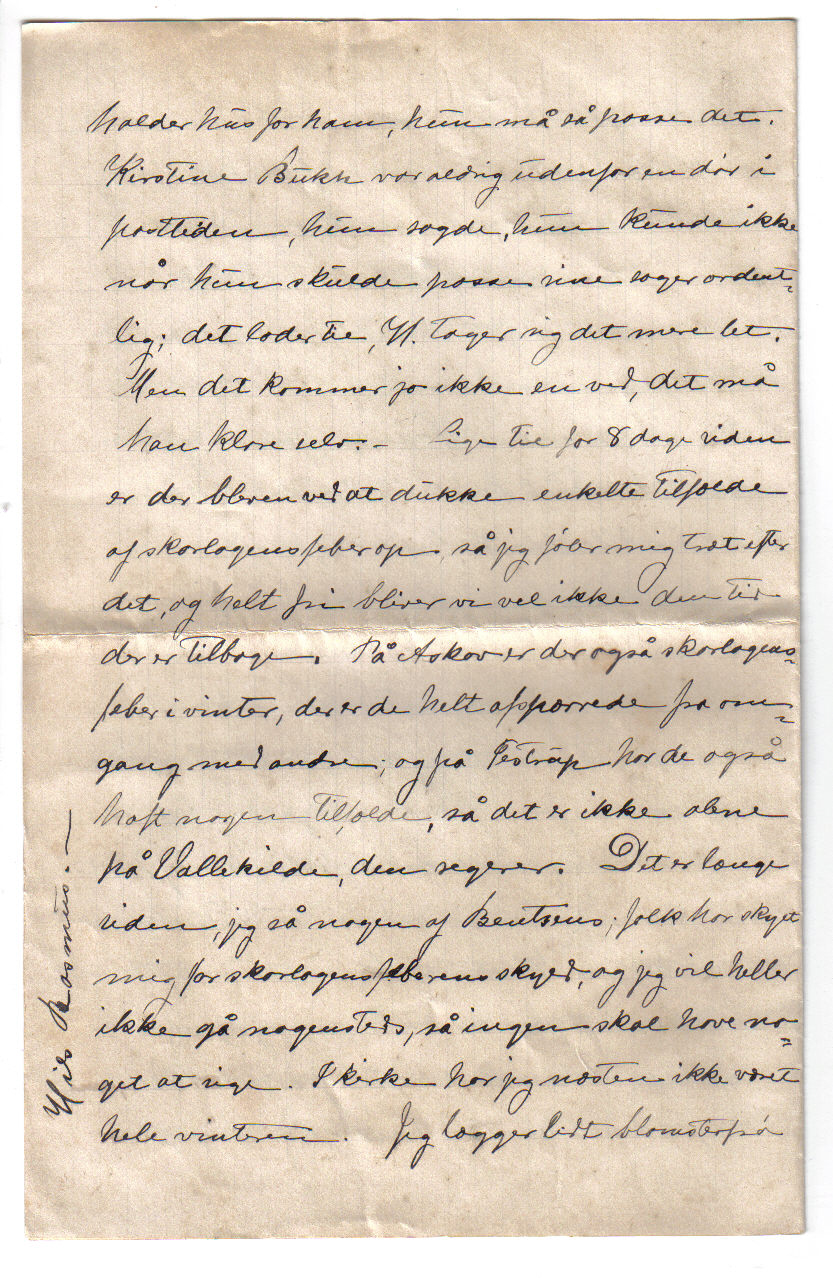 holder hus for ham, hun må så passe det.
Kirstine Bukh var aldrig udenfor en dör i
posttiden, hun sagde, hun kunde ikke
når hun skulde passe sine sager ordent-
lig; det lader til, H. tager sig det mere let.
Men det kommer jo ikke en ved, det må
han klare selv. – Lige til for 8 dage siden
er der bleven ved at dukke enkelte tilfælde
af skarlagensfeber op, så jeg föler mig træt efter
det, og helt fri bliver vi vel ikke den tid
der er tilbage. På Askov er der også skarlagens-
feber i vinter, der er de helt afspærrede fra om-
gang med andre; og på Testrup har de også
haft nogen tilfælde, så det er ikke alene
på Vallekilde, den regerer. Det er længe
siden, jeg så nogen af Bentsens; folk har skyet
mig for skarlagensfeberens skyld, og jeg vil heller
ikke gå nogensteds, så ingen skal have no-
get at sige. I kirke har jeg næsten ikke været
hele vinteren. Jeg lægger lidt blomsterfrö
Hils Rasmus. –